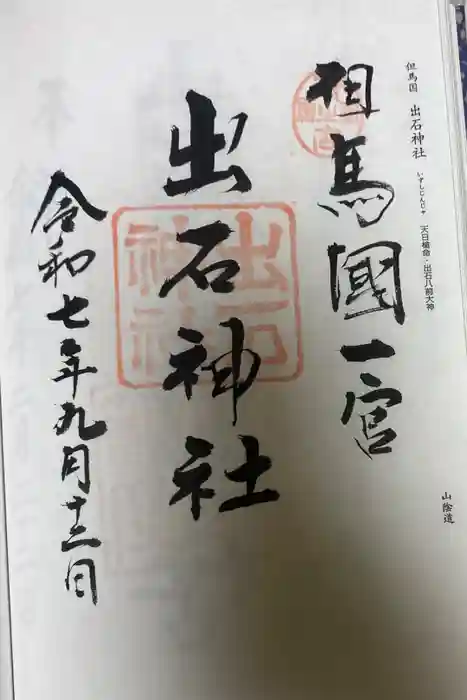 但馬国 出石神社 いずしじんじゃ 天日槍命・出石八前大神
山陰道
但馬國一宮
出石神社
令和七年九月十二日
出石神社